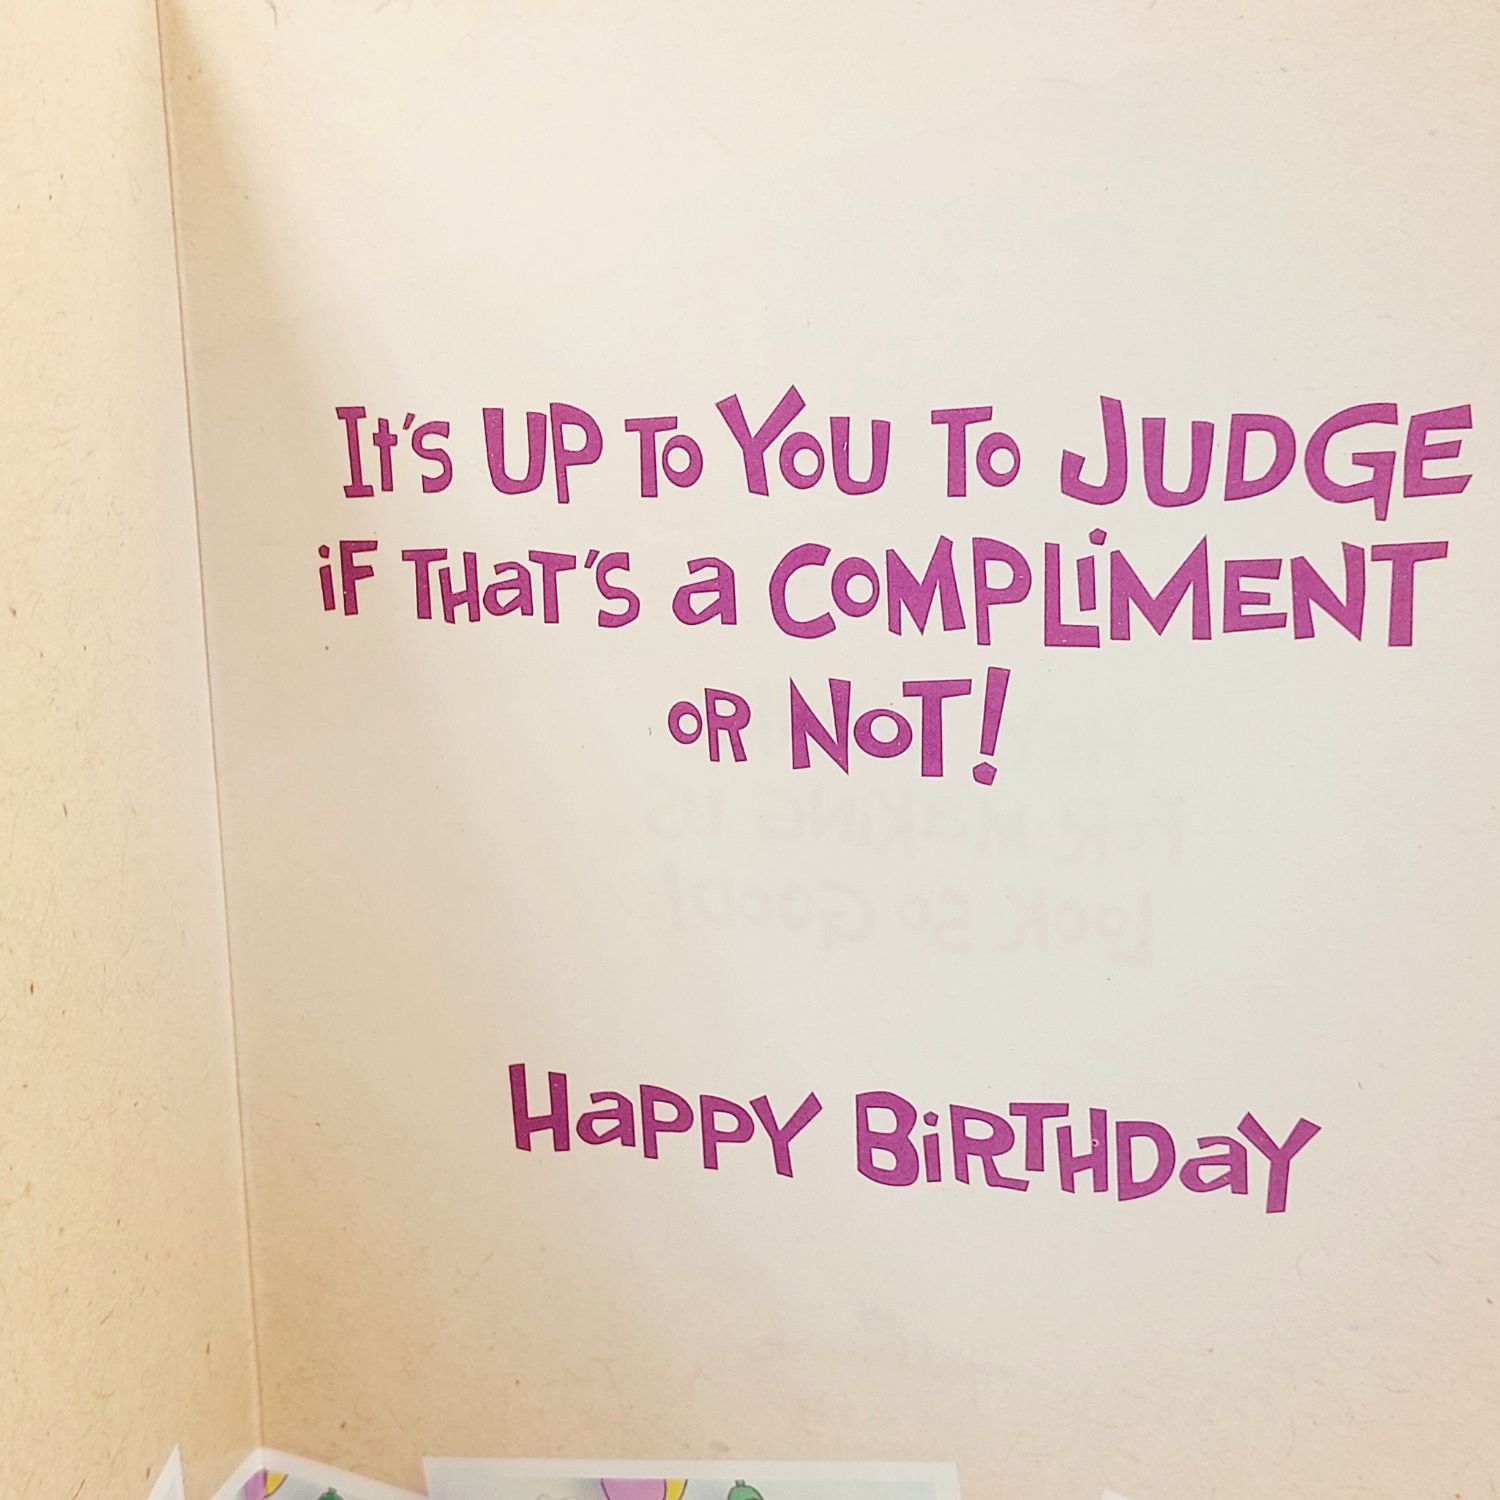 It's UP To YoU To JUDGE
iF THaT'S a CoMPLiMENT
oR NoT!
HaPPY BiRTHDaY